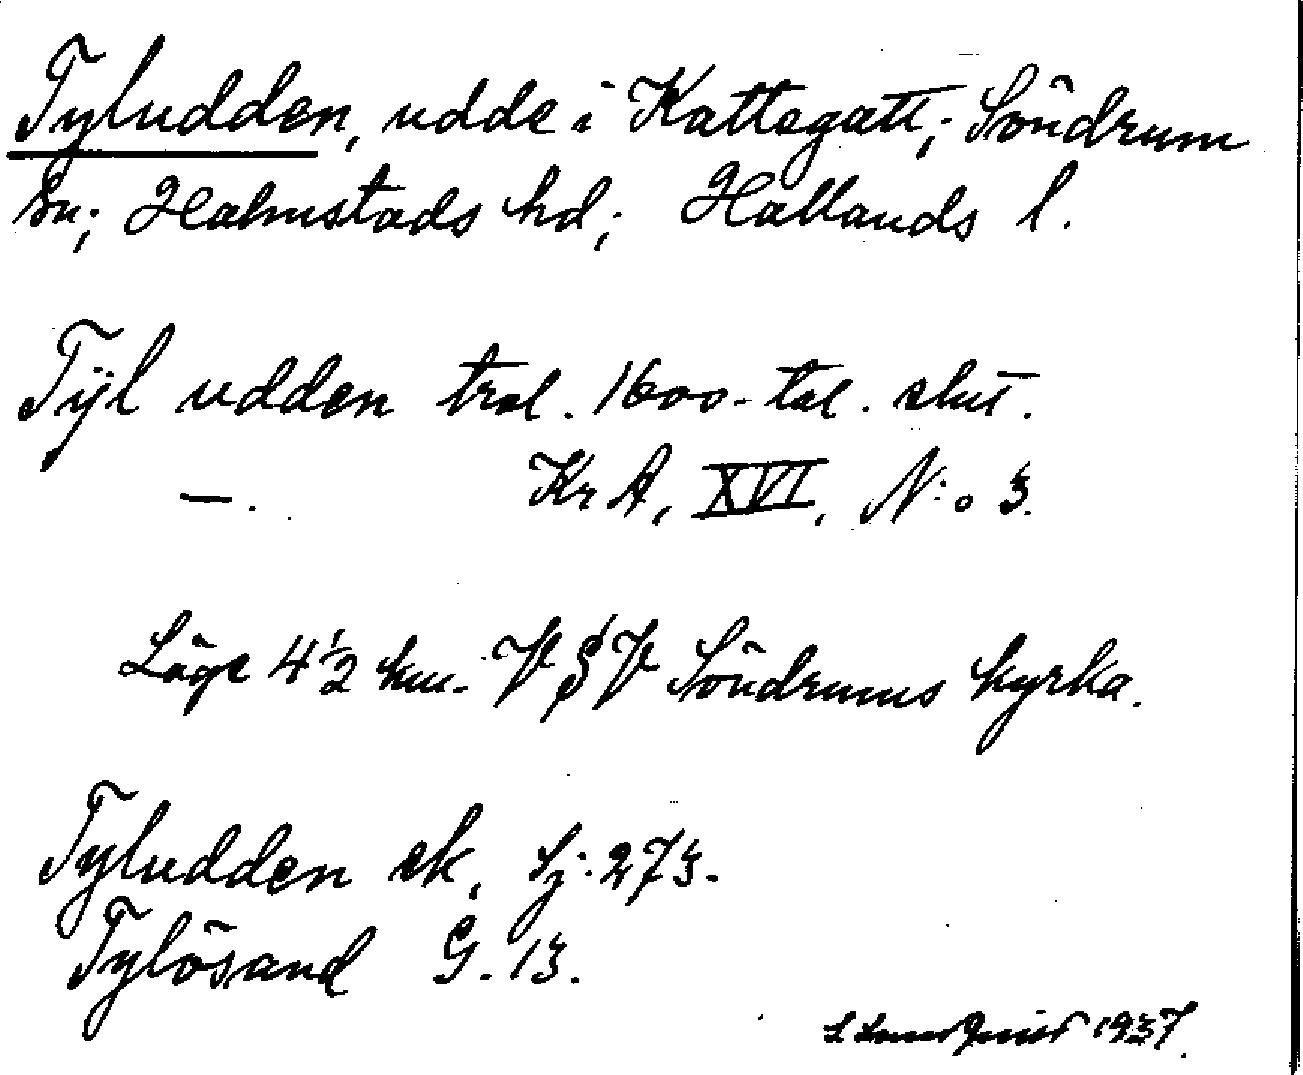 Tyludden, udde i Kattegatt; Söndrum
sn; Halmstads hd; Hallands l.
Tÿl udden trol. 1600-tal. slut.
—. Kr A, XVI, N:o 3.
Läge 4 1/2 km. V § V Söndrums kyrka.
Tyludden ek, Sj. 273.
Tylösand G. 13.
1937.